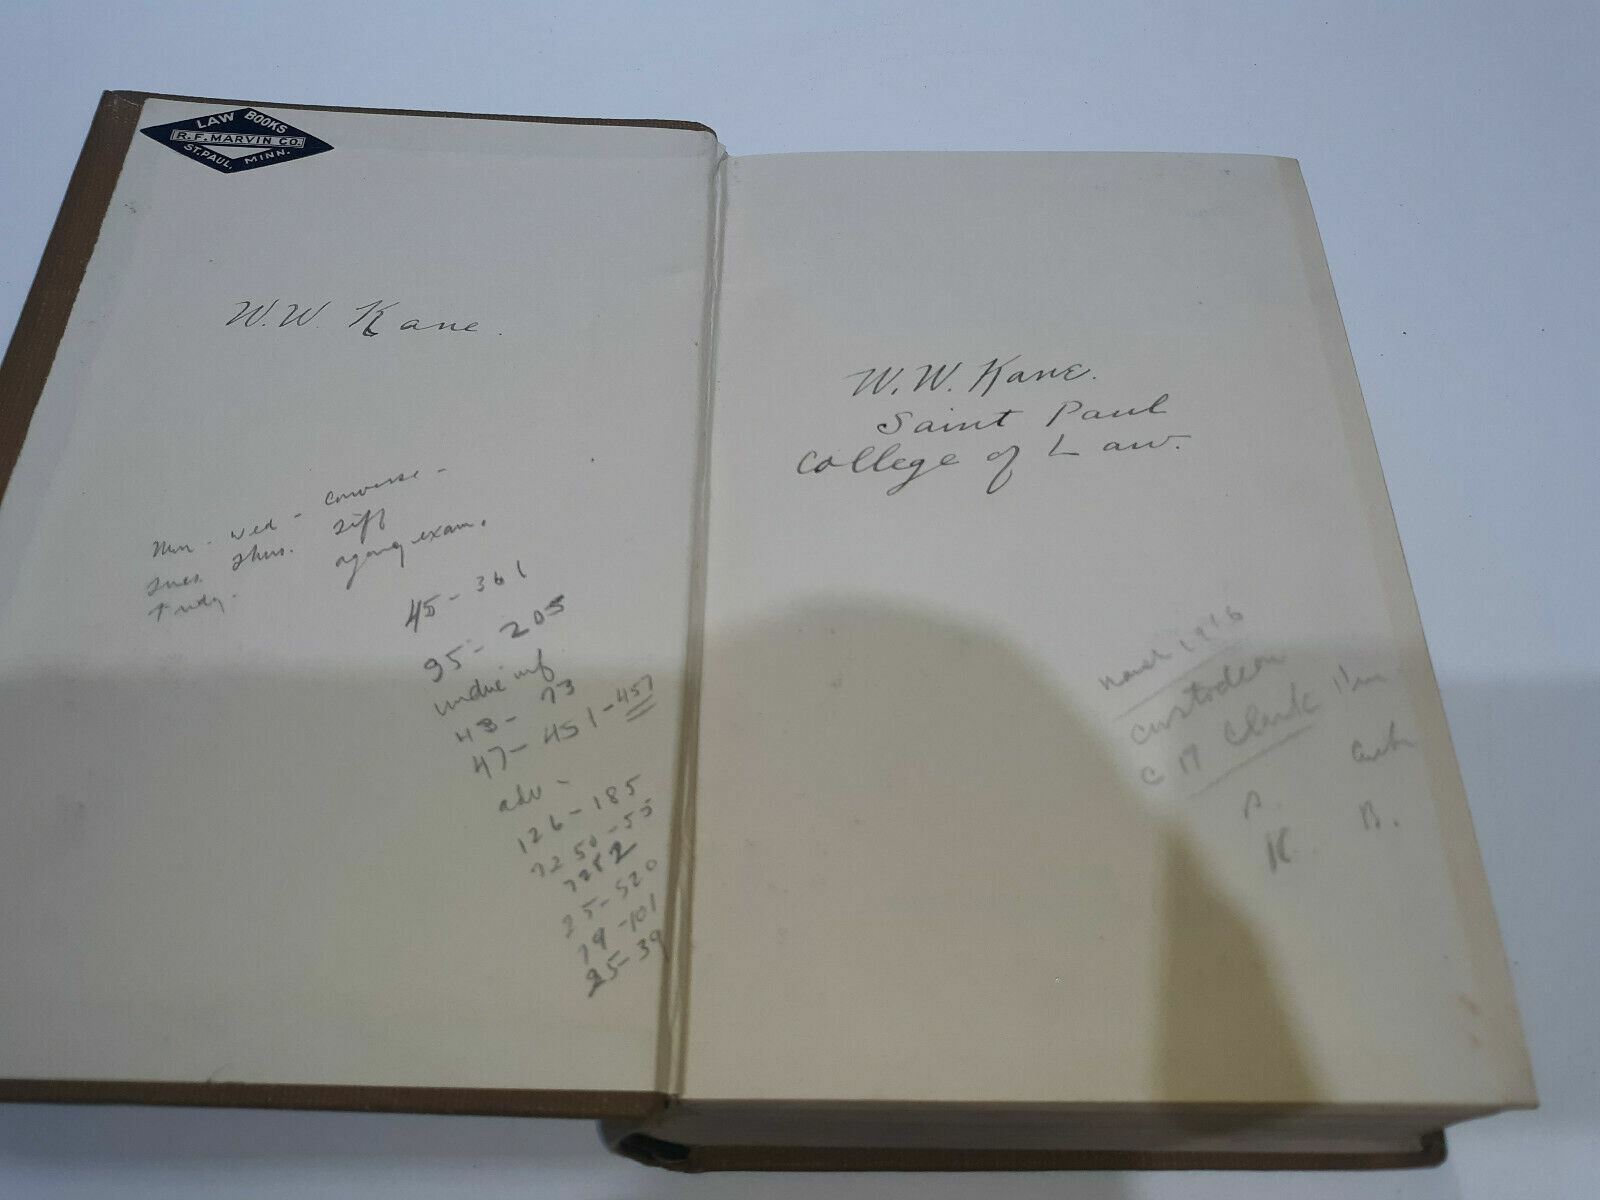 LAW BOOKS
R.F. MARVIN CO.
ST. PAUL, MINN.
W.W. Kane.
Mon - Wed - converse -
Tues. Thus.
exam.
45 - 361
95 - 205
undue inf
48 - 73
47 - 451 - 457
adv -
126 - 185
72 50 - 55
7252
25 - 520
79 - 101
25 - 39
W. W. Kane.
Saint Paul
College of Law.
March 1916
C M Clark
K. B.